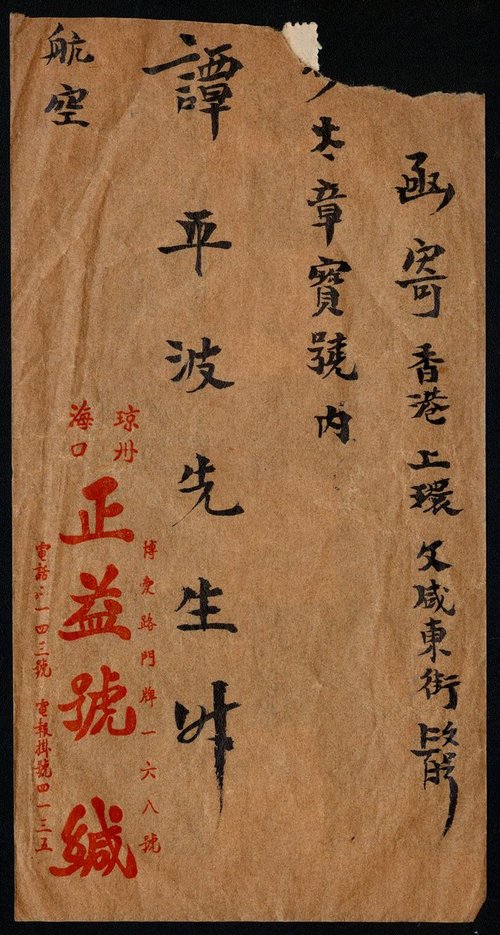 函寄香港上環文咸東街
章寶號內
譚平波先生
航空
琼州
海口
博愛路門牌一六八號
正益號 緘
電話一四三號 電報掛號四一三五